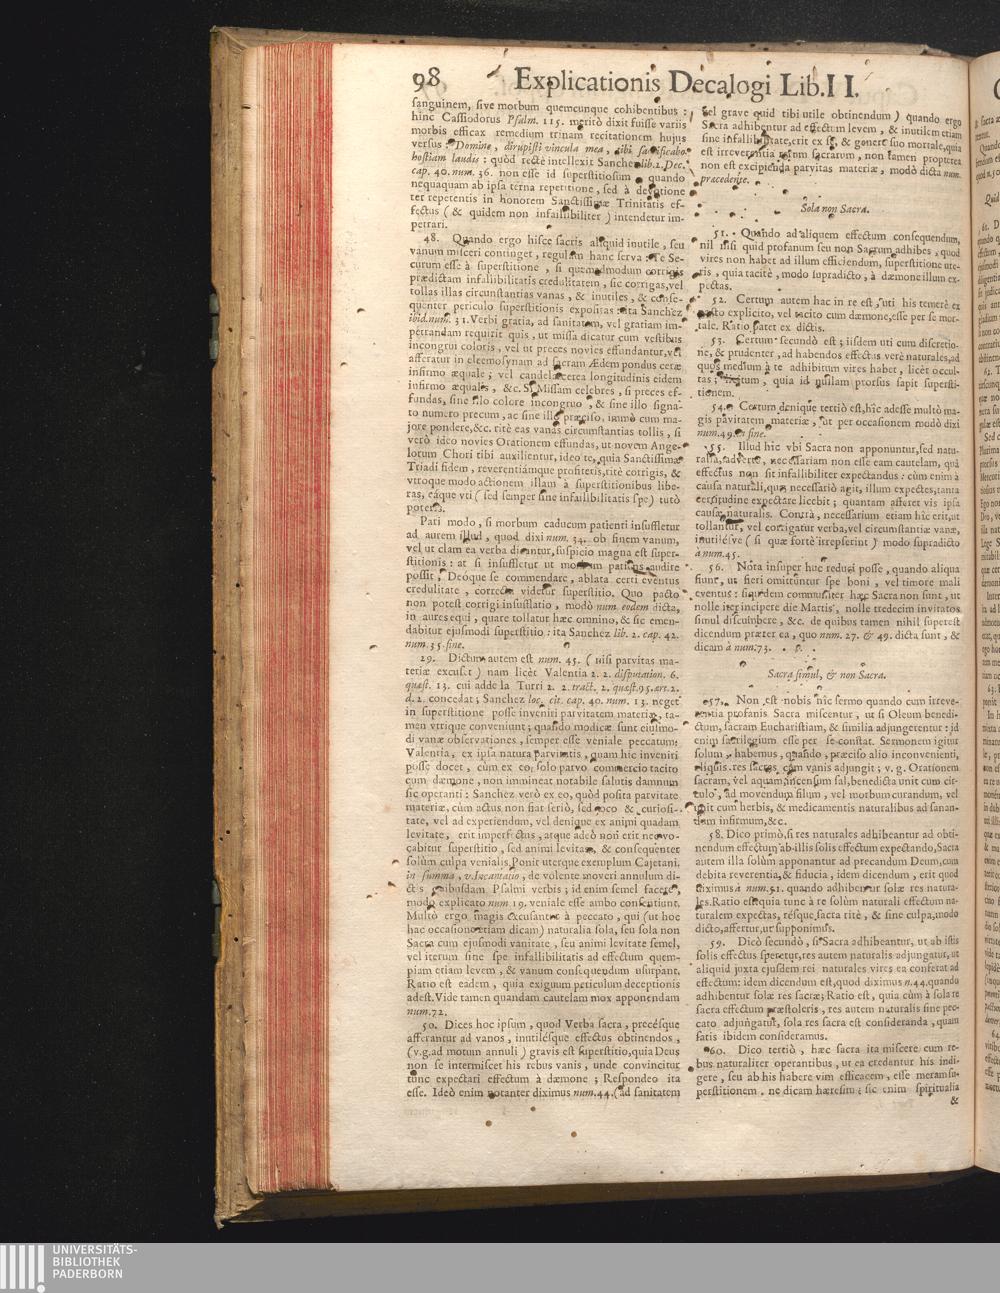 98 Explicationis Decalogi Lib. II.
sanguinem, sive morbum quemcunque cohibentibus :
hinc Cassiodorus Psalm. 115. meritò dixit fuisse variis
morbis efficax remedium trinam recitationem hujus
versus : Domine, dirupisti vincula mea, tibi sacrificabo
hostiam laudis : quòd rectè intellexit Sanchez lib. 2. Dec.
cap. 40. num. 36. non esse id superstitiosum, quando
nequaquam ab ipsa terna repetitione, sed à devotione
ter repetentis in honorem Sanctissimæ Trinitatis ef-
fectus (& quidem non infallibiliter) intendetur im-
petrari.
48. Quando ergo hisce sacris aliquid inutile, seu
vanum misceri continget, regulam hanc serva : Te Se-
curum esse à superstitione, si quemadmodum corrigis
prædictam infallibilitatis credulitatem, sic corrigas, vel
tollas illas circunstantias vanas, & inutiles, & conse-
quenter periculo superstitionis expositas : ita Sanchez
ibid. num. 31. Verbi gratia, ad sanitatem, vel gratiam im-
petrandam requirit quis, ut missa dicatur cum vestibus
incongrui coloris, vel ut preces novies effundantur, vel
afferatur in eleemosynam ad sacram Ædem pondus ceræ
infirmo æquale ; vel candela cerea longitudinis eidem
infirmo æqualis, &c. Si Missam celebres, si preces ef-
fundas, sine illo colore incongruo, & sine illo signa-
to numero precum, ac sine illo præciso, immò cum ma-
jore pondere, &c. ritè eas vanas circumstantias tollis, si
verò ideo novies Orationem effundas, ut novem Ange-
lorum Chori tibi auxilientur, ideo te, quia Sanctissimæ
Triadi fidem, reverentiámque profiteris, ritè corrigis, &
vtroque modo actionem illam à superstitionibus libe-
ras, eáque vti (sed semper sine infallibilitatis spe) tutò
poteris.
Pari modo, si morbum caducum patienti insuffletur
ad aurem illud, quod dixi num. 34. ob finem vanum,
vel ut clam ea verba dicantur, suspicio magna est super-
stitionis : at si insuffletur ut morbum patiens audire
possit, Deóque se commendare, ablata certi eventus
credulitate, correcta videtur superstitio. Quo pacto
non potest corrigi insufflatio, modò num. eodem dicta,
in aures equi, quare tollatur hæc omnino, & sic emen-
dabitur ejusmodi superstitio : ita Sanchez lib. 2. cap. 42.
num. 35. fine.
29. Dictum autem est num. 45. (nisi parvitas ma-
teriæ excuset) nam licèt Valentia 2. 2. disputation. 6.
quæst. 13. cui adde la Turri 2. 2. tract. 2. quæst. 95. art. 2.
d. 2. concedat ; Sanchez loc. cit. cap. 40. num. 13. neget
in superstitione posse inveniri parvitatem materiæ, ta-
men vtrique conveniunt ; quando modicæ sunt ejusmo-
di vanæ observationes, semper esse veniale peccatum:
Valentia, ex ipsa natura parvitatis, quam hic inveniri
posse docet, cùm ex eo, solo parvo commercio tacito
cum dæmone, non immineat notabile salutis damnum
sic operanti : Sanchez verò ex eo, quòd posita parvitate
materiæ, cùm actus non fiat seriò, sed joco & curiosi-
tate, vel ad experiendum, vel denique ex animi quadam
levitate, erit imperfectus, atque adeò non erit nec vo-
cabitur superstitio, sed animi levitas, & consequenter
solùm culpa venialis. Ponit uterque exemplum Cajetani.
in summa, v. Incantatio, de volente moveri annulum di-
ctis quibusdam Psalmi verbis ; id enim semel facere,
modo explicato num 19. veniale esse ambo consentiunt.
Multò ergo magis excusantur à peccato, qui (ut hoc
hac occasione etiam dicam) naturalia sola, seu sola non
Sacra cum ejusmodi vanitate, seu animi levitate semel,
vel iterum sine spe infallibilitatis ad effectum quem-
piam etiam levem, & vanum consequendum usurpant.
Ratio est eadem, quia exiguum periculum deceptionis
adest. Vide tamen quandam cautelam mox apponendam
num. 72.
50. Dices hoc ipsum, quod Verba sacra, precésque
afferantur ad vanos, inutilésque effectus obtinendos,
(v. g. ad motum annuli) gravis est superstitio, quia Deus
non se intermiscet his rebus vanis, unde convincitur
tunc expectari effectum à dæmone ; Respondeo ita
esse. Ideò enim notanter diximus num. 44. (ad sanitatem
vel grave quid tibi utile obtinendum) quando ergo
Sacra adhibentur ad effectum levem, & inutilem etiam
sine infallibilitate, erit ex se, & genere suo mortale, quia
est irreverentia rerum sacrarum, non tamen propterea
non est excipienda parvitas materiæ, modò dicta num.
præcedente.
Sola non Sacra.
51. Quando ad aliquem effectum consequendum,
nil nisi quid profanum seu non Sacrum adhibes, quod
vires non habet ad illum efficiendum, superstitione ute-
ris, quia tacitè, modo supradicto, à dæmone illum ex-
pectas.
52. Certum autem hac in re est, uti his temerè ex
pacto explicito, vel tacito cum dæmone, esse per se mor-
tale. Ratio patet ex dictis.
53. Certum secundò est ; iisdem uti cum discretio-
ne, & prudenter, ad habendos effectus verè naturales, ad
quos medium à te adhibitum vires habet, licèt occul-
tas ; licitum, quia id nullam prorsus sapit supersti-
tionem.
54. Certum denique tertiò est, hîc adesse multò ma-
gis pavitatem materiæ, ut per occasionem modò dixi
num. 49. in fine.
55. Illud hic vbi Sacra non apponuntur, sed natu-
ralia, adverte, necessariam non esse eam cautelam, quâ
effectus non sit infallibiliter expectandus : cùm enim à
causa naturali, quæ necessariò agit, illum expectes, tanta
certitudine expectare licebit ; quantam afferet vis ipsa
causæ naturalis. Contrà, necessarium etiam hîc erit, ut
tollantur, vel corrigatur verba, vel circumstantiæ vanæ,
inutilésve (si quæ fortè irrepserint) modo supradicto
à num. 45.
56. Nota insuper huc reduci posse, quando aliqua
fiunt, ut fieri omittuntur spe boni, vel timore mali
eventus : siquidem communiter hæc Sacra non sunt, ut
nolle iter incipere die Martis, nolle tredecim invitatos
simul discumbere, &c. de quibus tamen nihil superest
dicendum præter ea, quo num. 27. & 49. dicta sunt, &
dicam à num. 73.
Sacra simul, & non Sacra.
57. Non est nobis hîc sermo quando cum irreve-
rentia profanis Sacra miscentur, ut si Oleum benedi-
ctum, sacram Eucharistiam, & similia adjungerentur : id
enim sacrilegium esse per se constat. Sermonem igitur
solum habemus, quando, præciso alio inconvenienti,
aliquis res sacras cum vanis adjungit ; v. g. Orationem
sacram, vel aquam, incensum sal, benedicta unit cum cir-
culo, ad movendum filum, vel morbum curandum, vel
unit cum herbis, & medicamentis naturalibus ad sanan-
dum infirmum, &c.
58. Dico primò, si res naturales adhibeantur ad obti-
nendum effectum ab illis solis effectum expectando, Sacra
autem illa solùm apponantur ad precandum Deum, cum
debita reverentia, & fiducia, idem dicendum, erit quod
diximus à num. 51. quando adhibentur solæ res natura-
les. Ratio est, quia tunc à re solùm naturali effectum na-
turalem expectas, résque sacra ritè, & sine culpa, modo
dicto, affertur, ut supponimus.
59. Dicò secundò, si Sacra adhibeantur, ut ab istis
solis effectus speretur, res autem naturalis adjungatur, ut
aliquid juxta ejusdem rei naturales vires ea conferat ad
effectum: idem dicendum est, quod diximus n. 44. quando
adhibentur solæ res sacræ ; Ratio est, quia cùm à sola re
sacra effectum præstoleris, res autem naturalis sine pec-
cato adjungatur, sola res sacra est consideranda, quam
satis ibidem consideramus.
60. Dico tertiò, hæc sacra ita miscere cum re-
bus naturaliter operantibus, ut ea credantur his indi-
gere, seu ab his habere vim efficacem, esse meram su-
perstitionem, ne dicam hæresim ; sic enim spiritualia
&
UNIVERSITÄTS-
BIBLIOTHEK
PADERBORN